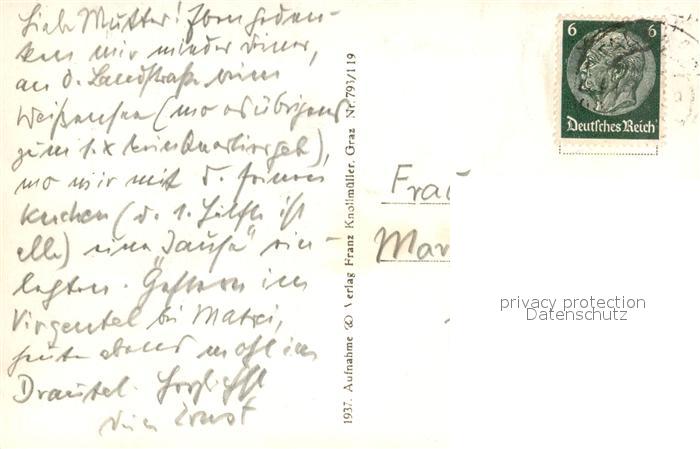 Liebe Mutter! Eben geden-
ken wir wieder Deiner,
an d. Landstraße beim
Weißensee (wo es übrigens
zum 1.x kein Quartier gab),
wo wir mit d. feinen
Kuchen (d. 1. Hälfte ist
alle) eine "Jause" ein-
legten. Gestern im
Virgental bei Matrei,
heute abend wohl im
Drautal. Herzlichst
Dein Ernst
1937. Aufnahme & Verlag Franz Knollmüller, Graz Nr. 793/119
6 6
Deutsches Reich
Frau
Mar
privacy protection
Datenschutz